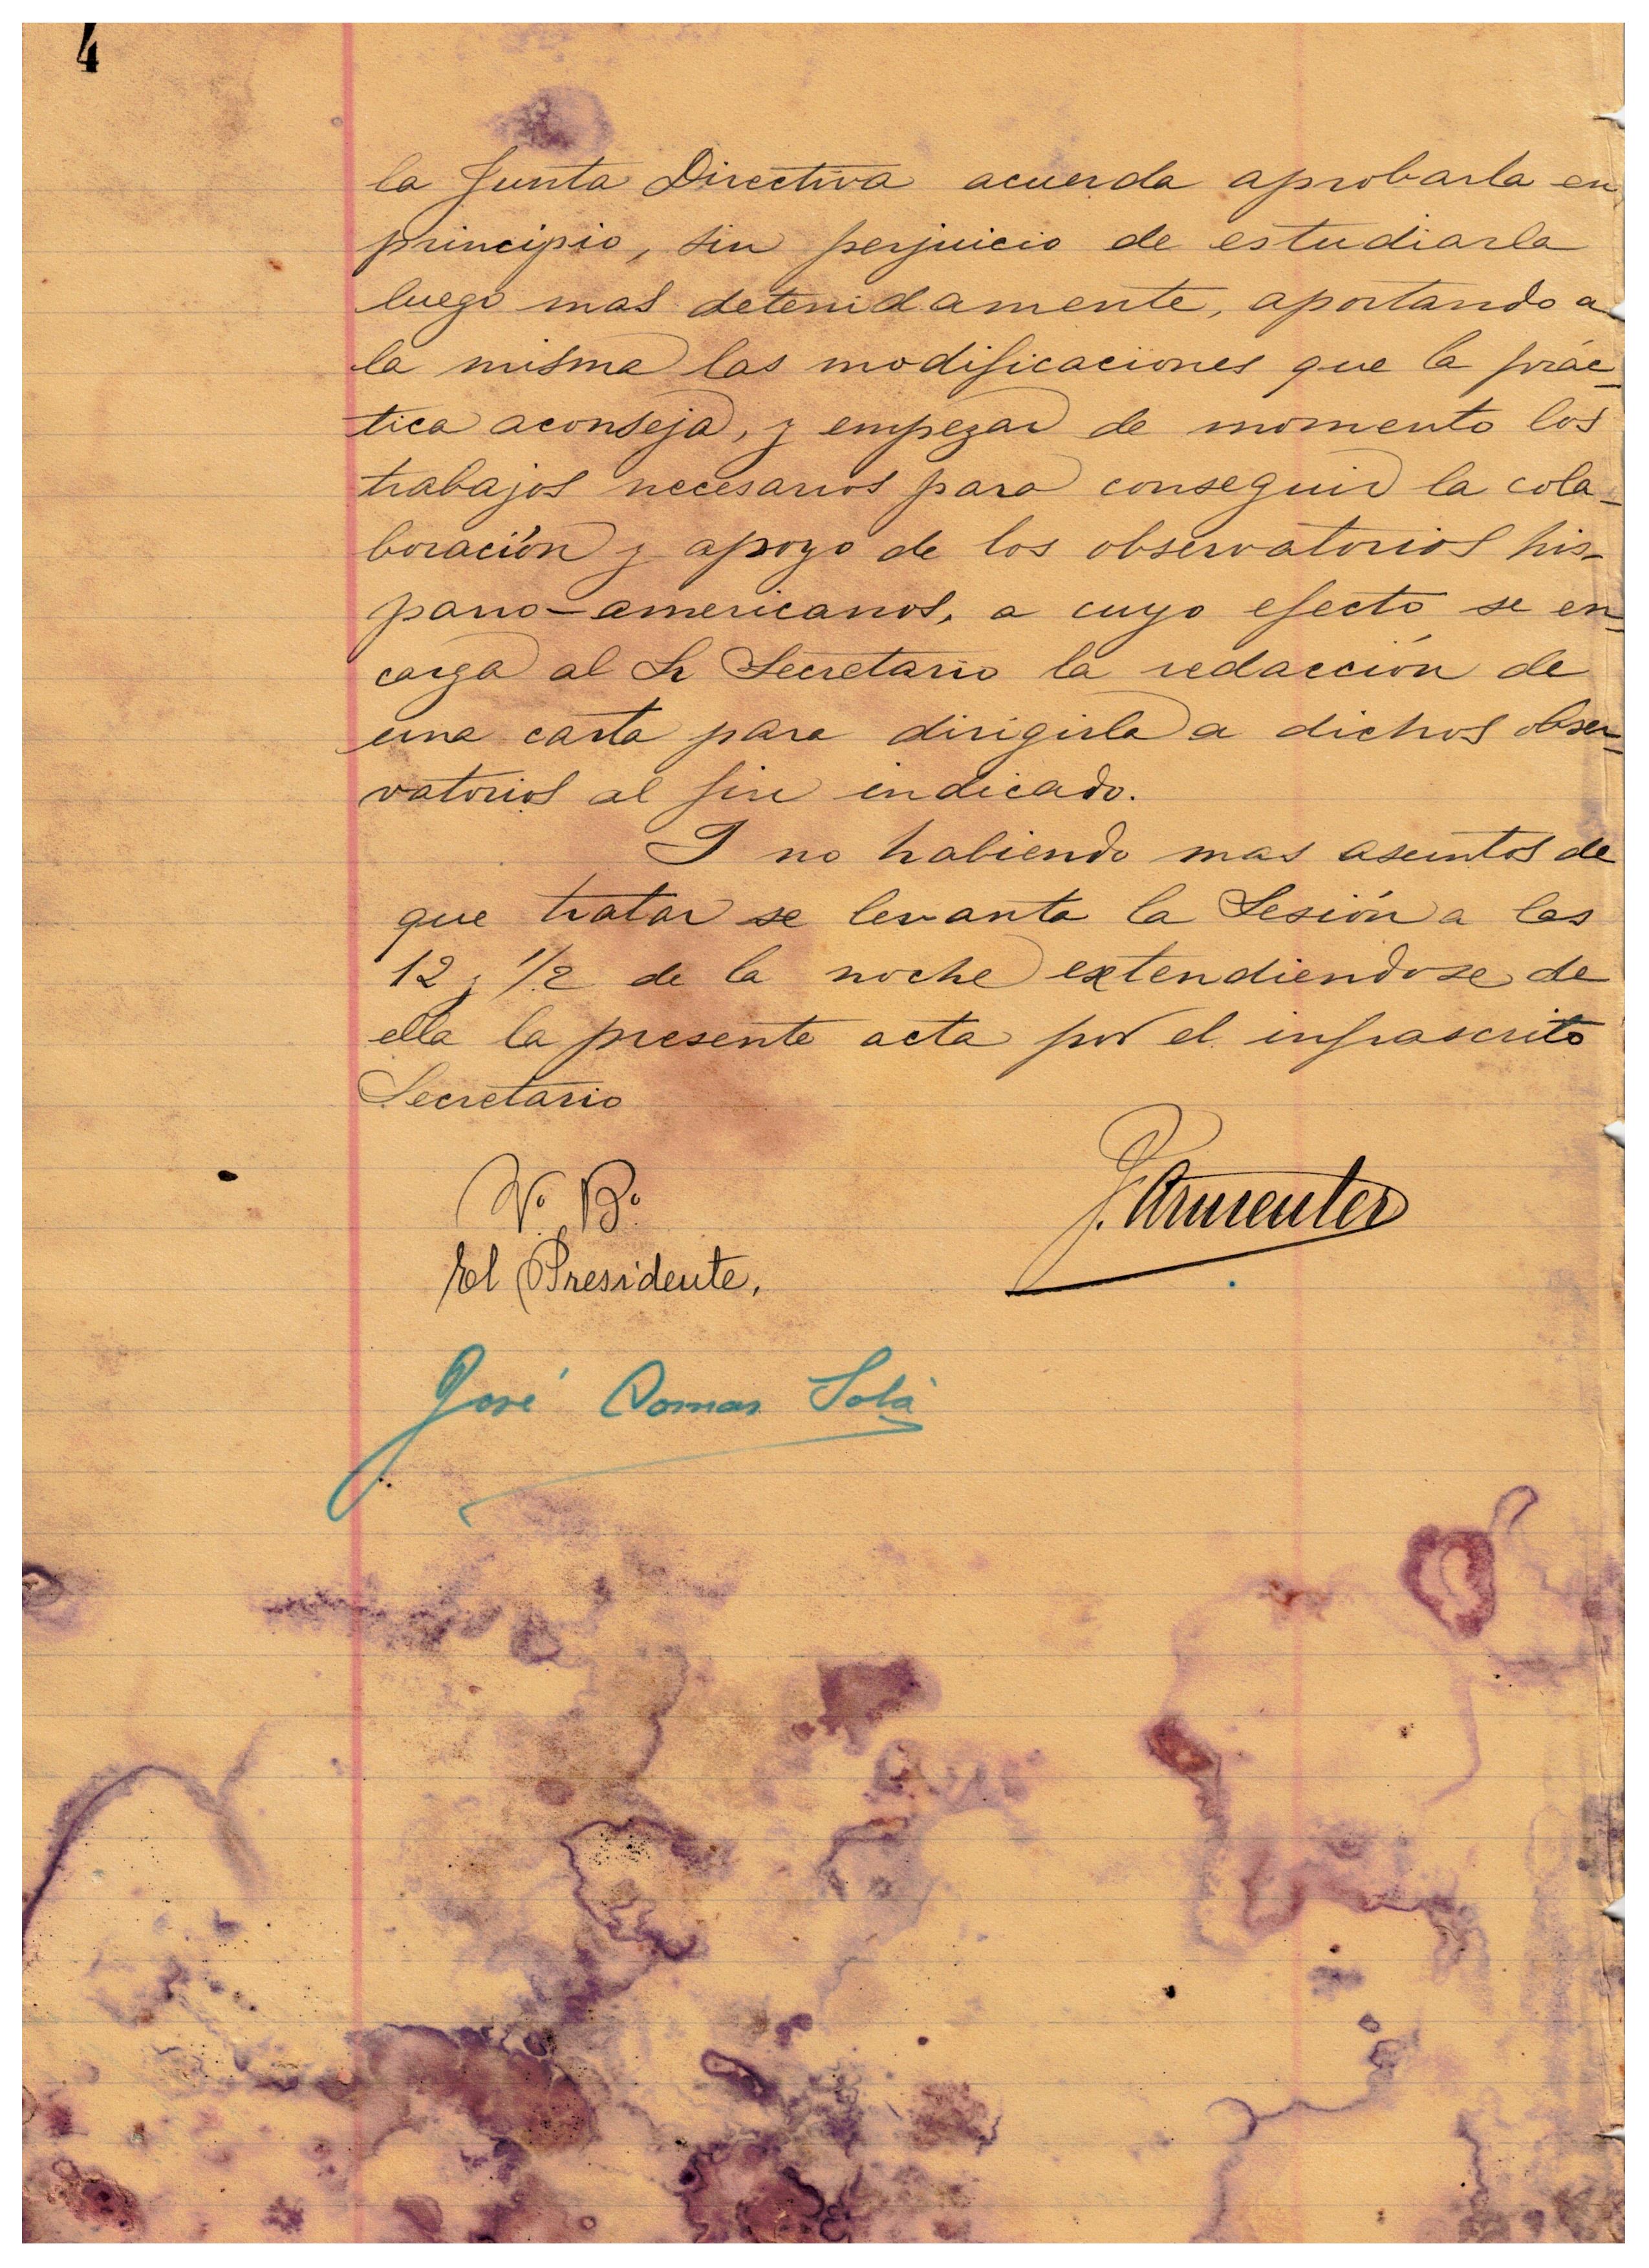 4
la Junta Directiva acuerda aprobarla en
principio, sin perjuicio de estudiarla
luego mas detenidamente, aportando a
la misma las modificaciones que la prác-
tica aconseja, y empezar de momento los
trabajos necesarios para conseguir la cola-
boración y apoyo de los observatorios his-
pano-americanos, a cuyo efecto se en-
carga al Sr Secretario la redacción de
una carta para dirigirla a dichos obser-
vatorios al fin indicado.
Y no habiendo mas asuntos de
que tratar se levanta la Sesión a las
12 y 1/2 de la noche extendiendose de
ella la presente acta por el infrascrito
Secretario
J. Armenter
Vº Bº
El Presidente,
José Comas Solà